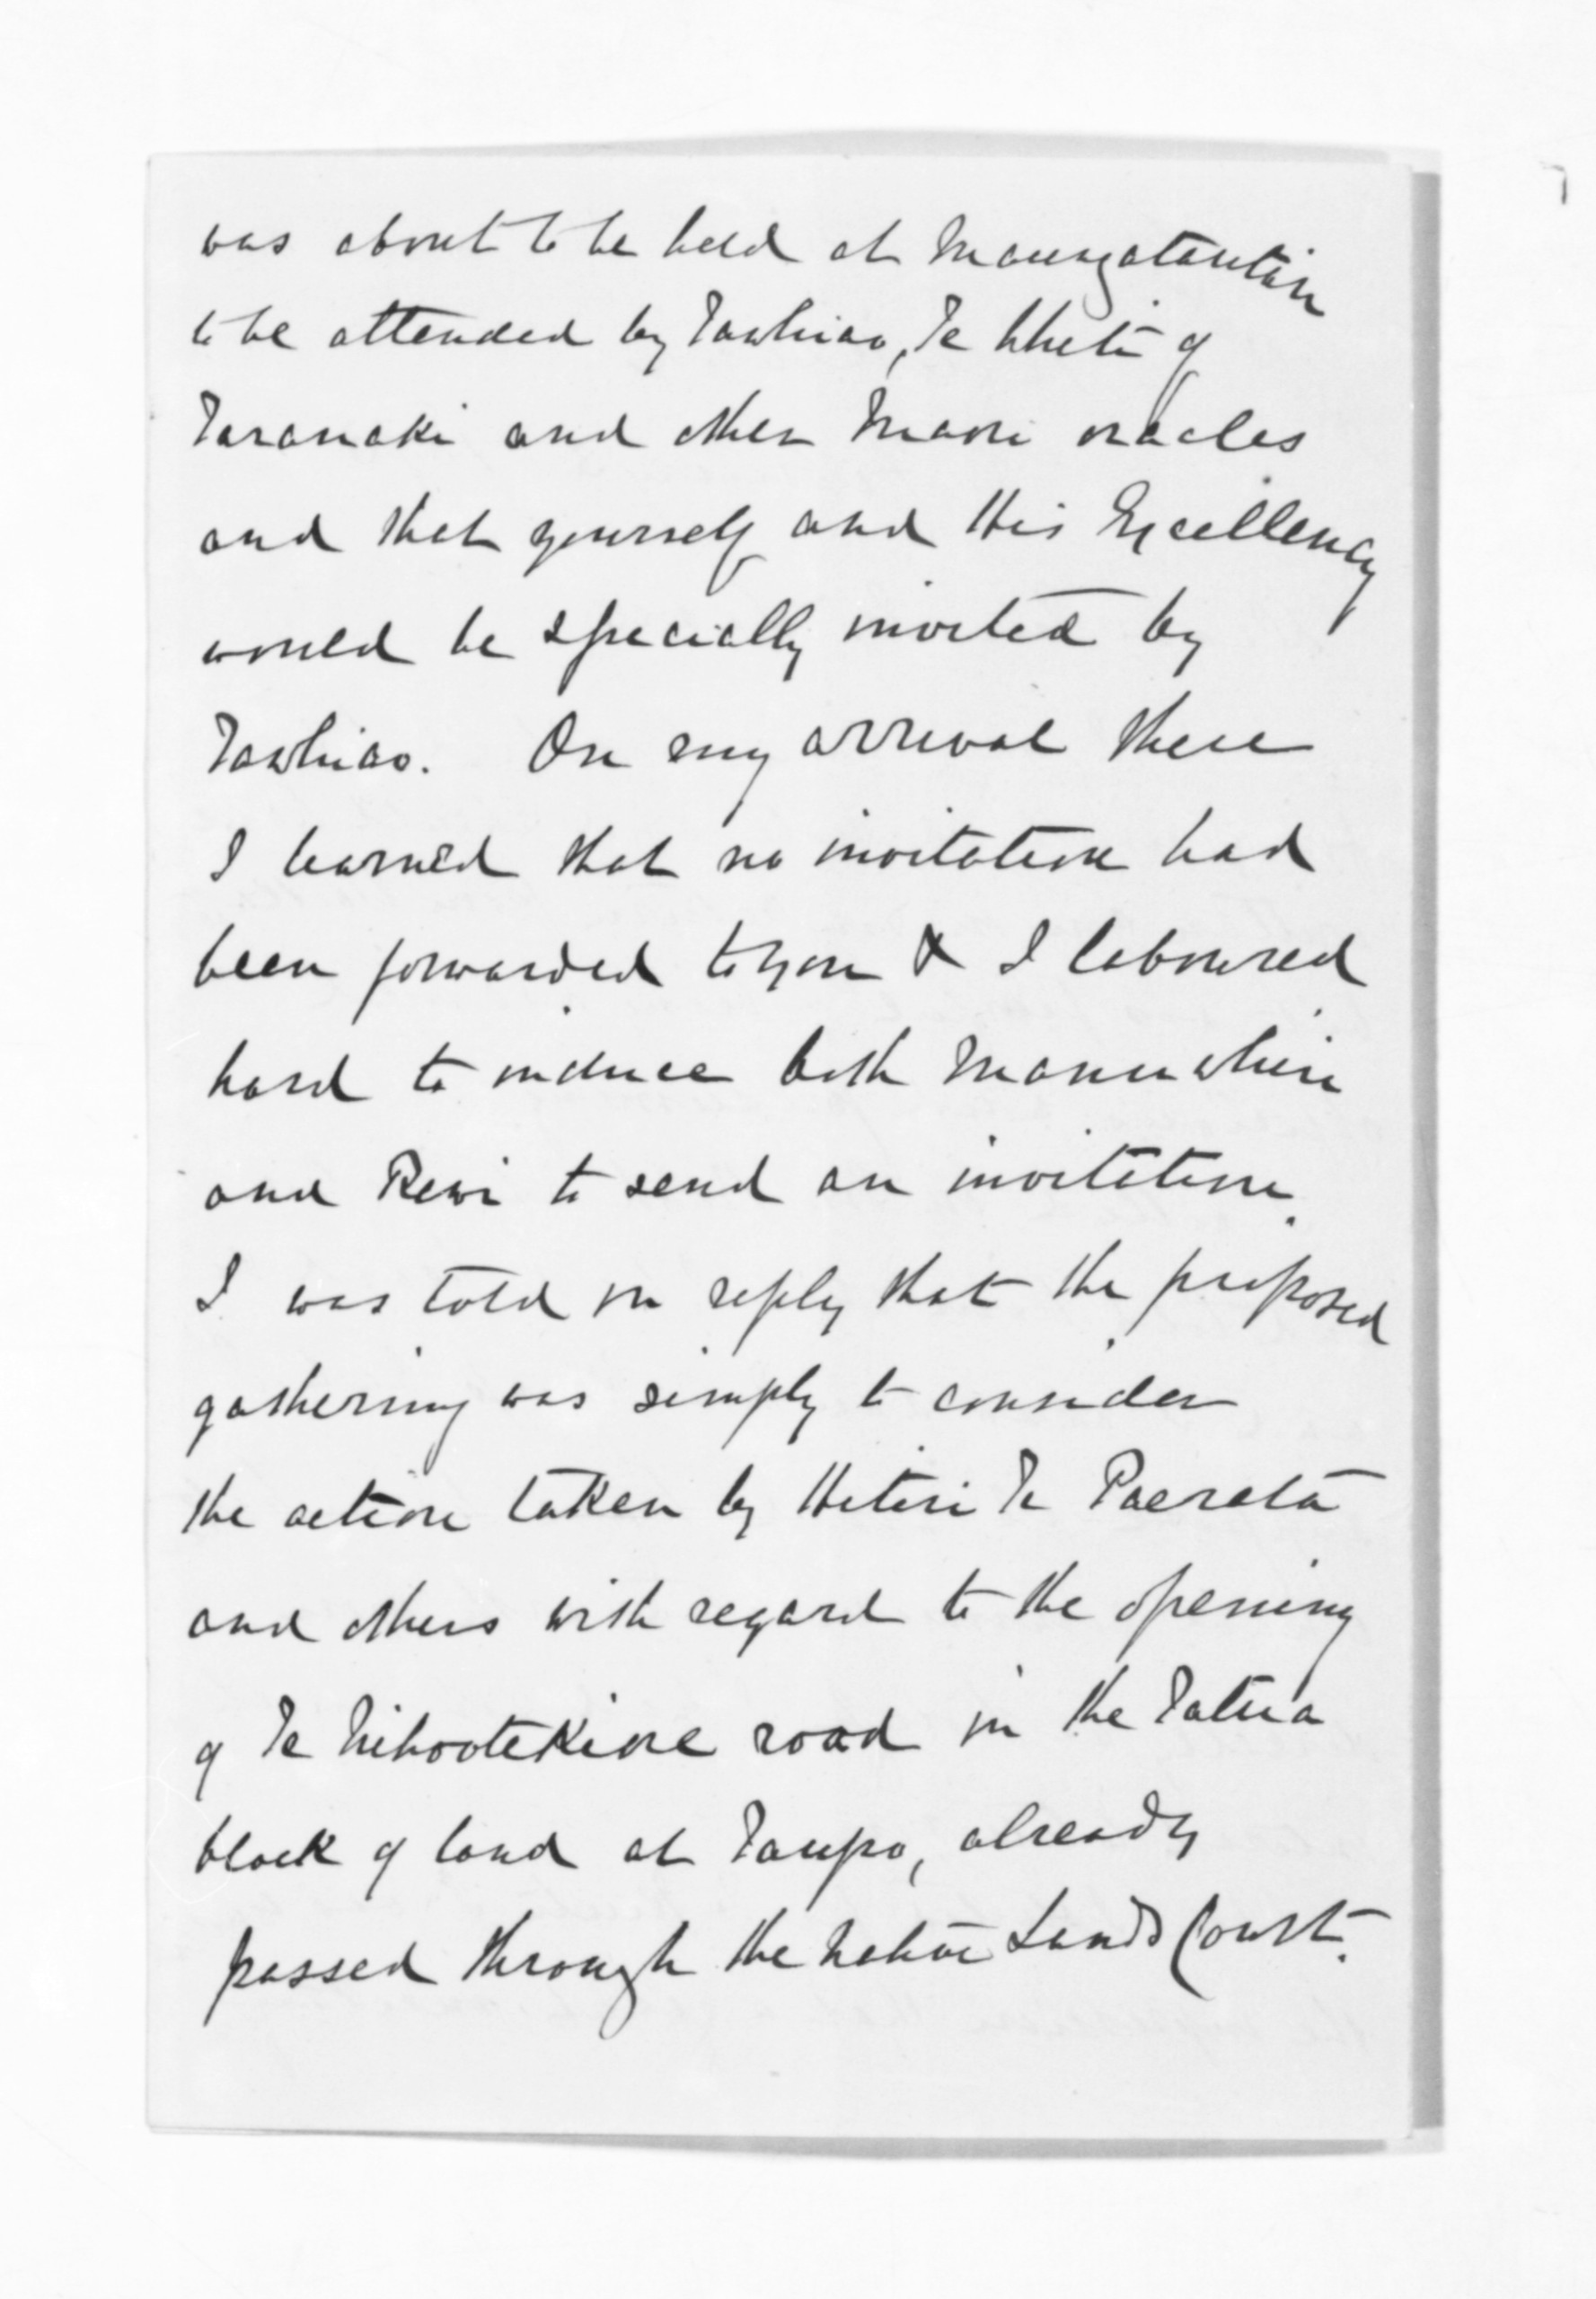 was about to be held at Maungatautari
to be attended by Tawhiao, Te Whiti of
Taranaki and other Maori oracles
and that yourself and His Excellency
would be specially invited by
Tawhiao. On my arrival there
I learned that no invitation had
been forwarded to you & I laboured
hard to induce both Manuwhiri
and Rewi to send an invitation.
I was told in reply that the proposed
gathering was simply to consider
the action taken by Hitiri Te Paerata
and others with regard to the opening
of Te Nihootekiore road in the Tatua
block of land at Taupo, already
passed through the Native Lands Court.